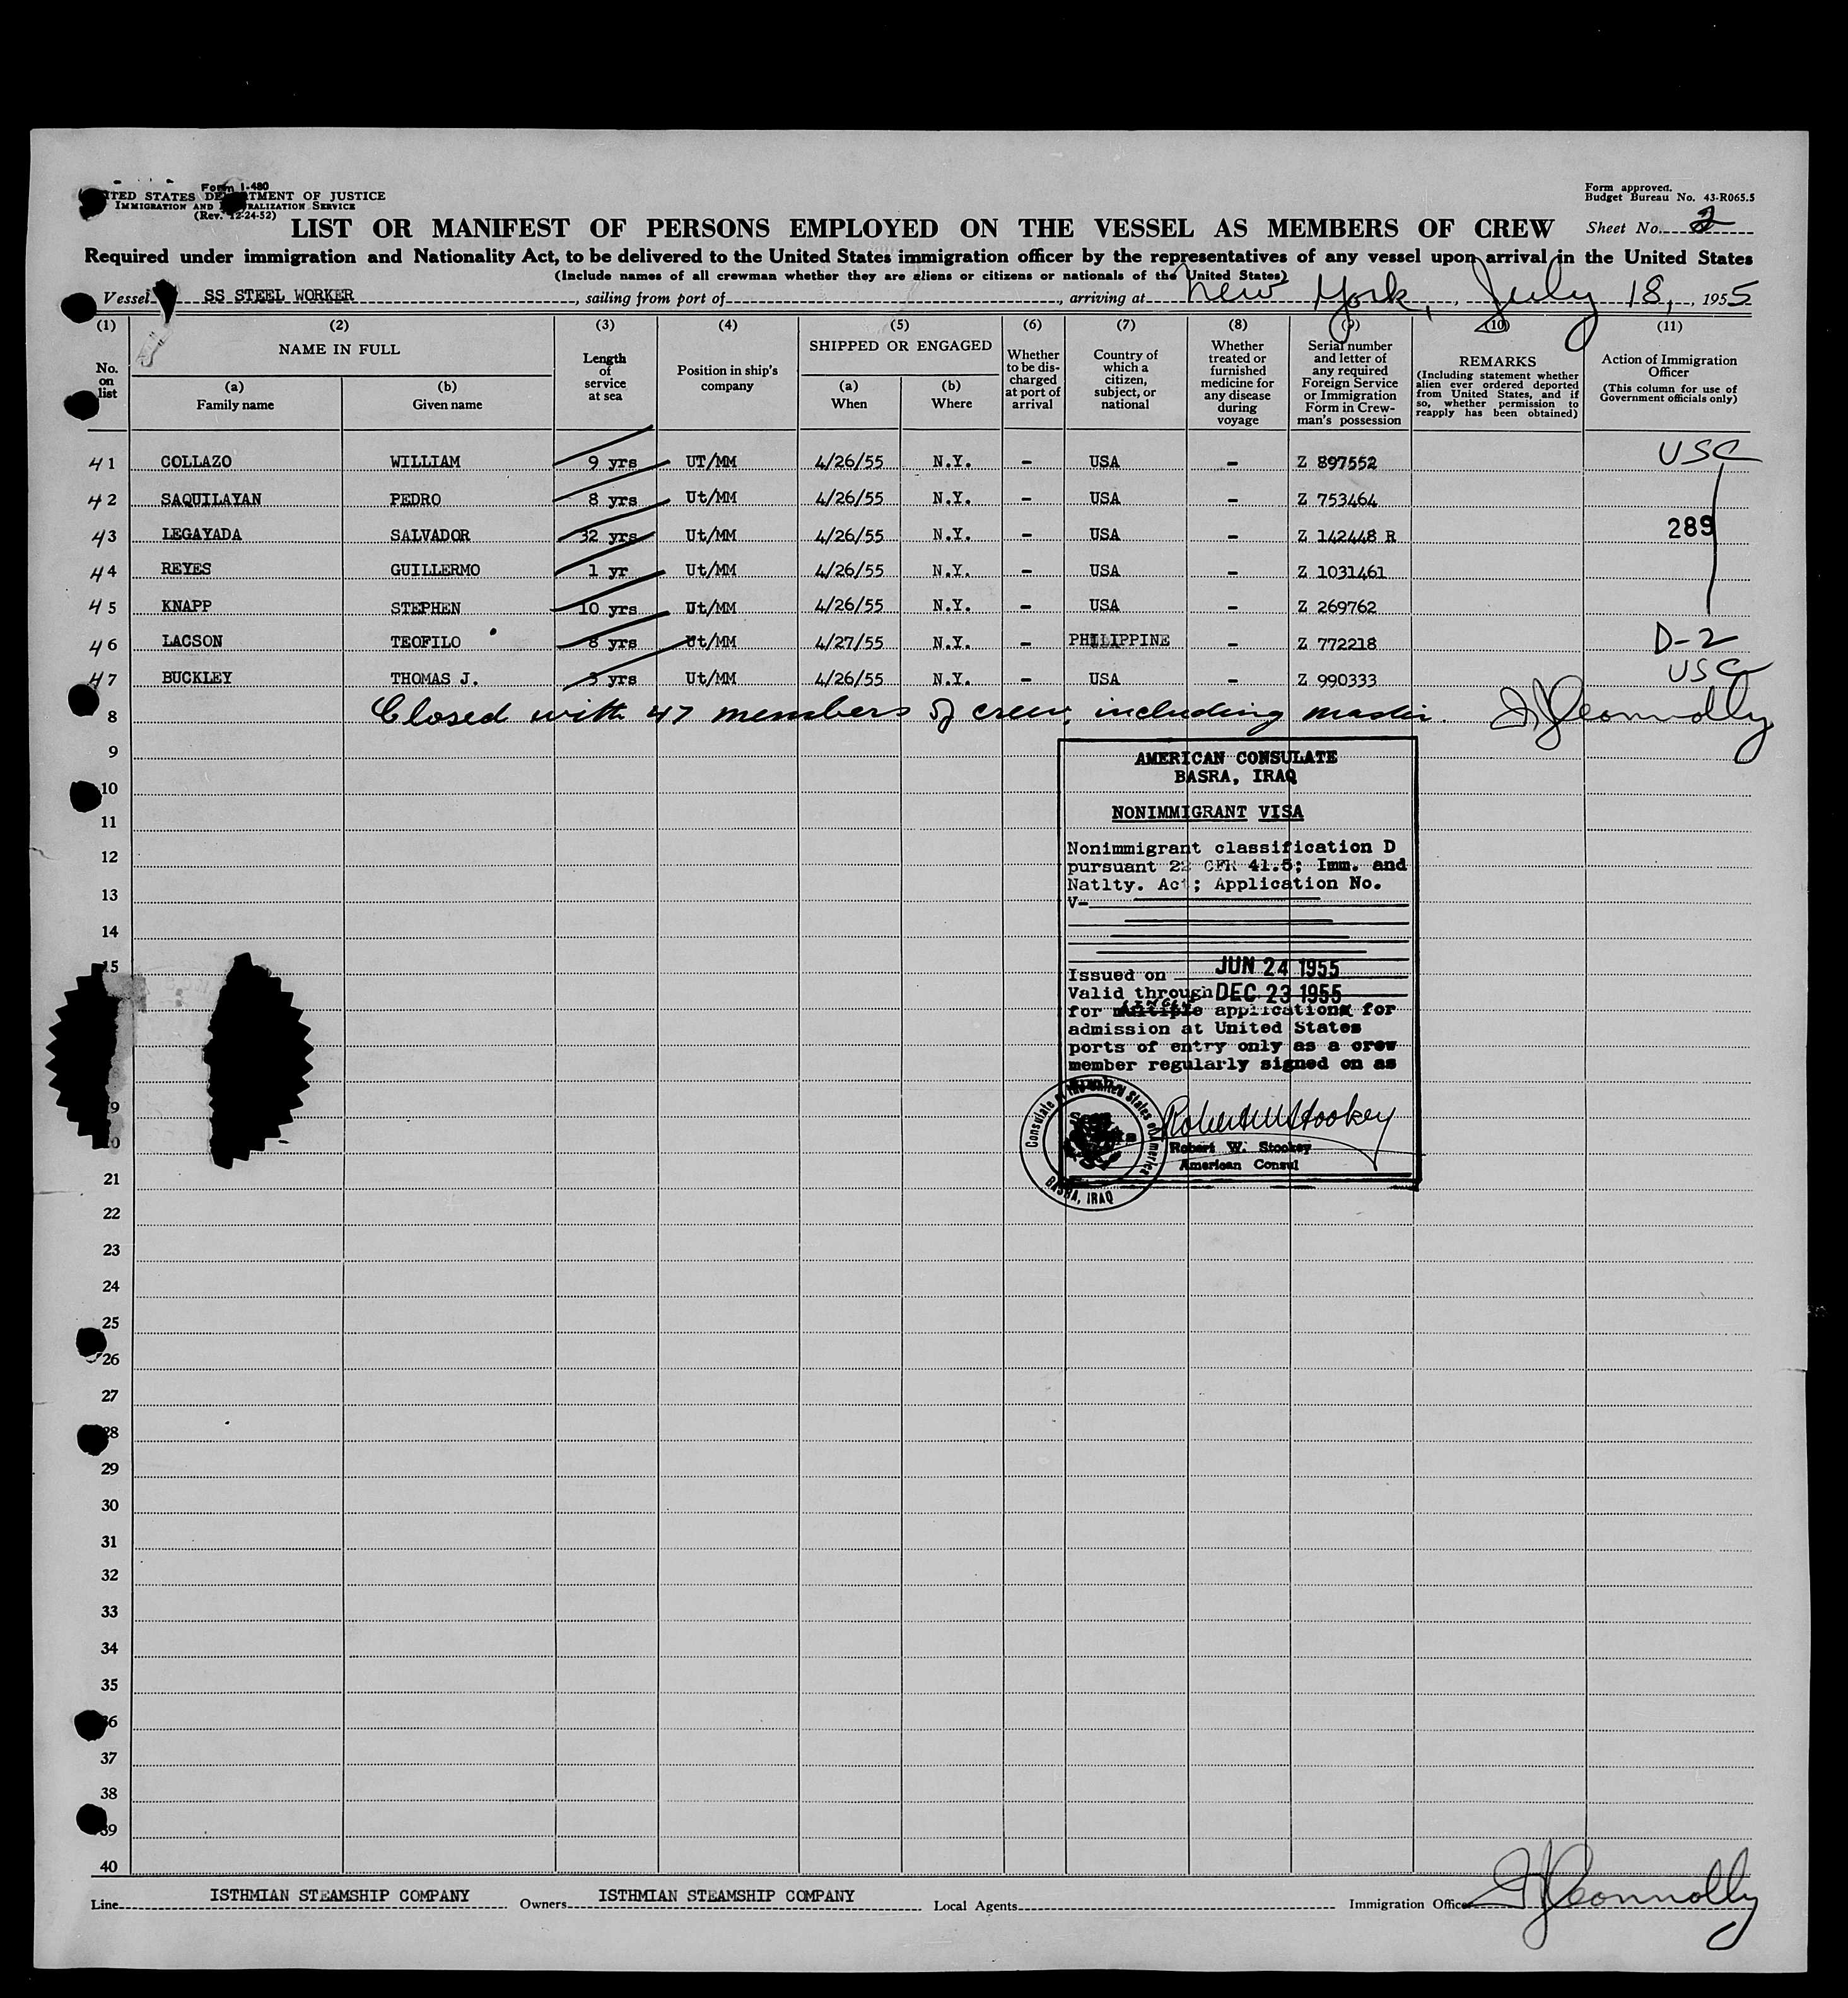 Form I-480
UNITED STATES DEPARTMENT OF JUSTICE
IMMIGRATION AND NATURALIZATION SERVICE
(Rev. 12-24-52)
Form approved.
Budget Bureau No. 43-R065.5
LIST OR MANIFEST OF PERSONS EMPLOYED ON THE VESSEL AS MEMBERS OF CREW
Sheet No. 2
Required under immigration and Nationality Act, to be delivered to the United States immigration officer by the representatives of any vessel upon arrival in the United States
(Include names of all crewman whether they are aliens or citizens or nationals of the United States)
Vessel SS STEEL WORKER, sailing from port of, arriving at New York, July 18, 1955
(1) (2) (3) (4) (5) (6) (7) (8) (9) (10) (11)
No. on list
NAME IN FULL
(a) Family name
(b) Given name
Length of service at sea
Position in ship's company
SHIPPED OR ENGAGED
(a) When
(b) Where
Whether to be discharged at port of arrival
Country of which a citizen, subject, or national
Whether treated or furnished medicine for any disease during voyage
Serial number and letter of any required Foreign Service or Immigration Form in Crewman's possession
REMARKS
(Including statement whether alien ever ordered deported from United States, and if so, whether permission to reapply has been obtained)
Action of Immigration Officer
(This column for use of Government officials only)
41 COLLAZO WILLIAM 9 yrs UT/MM 4/26/55 N.Y. - USA - Z 897552 USC
42 SAQUILAYAN PEDRO 8 yrs Ut/MM 4/26/55 N.Y. - USA - Z 753464
43 LEGAYADA SALVADOR 32 yrs Ut/MM 4/26/55 N.Y. - USA - Z 142448 R 289
44 REYES GUILLERMO 1 yr Ut/MM 4/26/55 N.Y. - USA - Z 1031461
45 KNAPP STEPHEN 10 yrs Ut/MM 4/26/55 N.Y. - USA - Z 269762
46 LACSON TEOFILO 8 yrs Ut/MM 4/27/55 N.Y. - PHILIPPINE - Z 772218 D-2
47 BUCKLEY THOMAS J. 3 yrs Ut/MM 4/26/55 N.Y. - USA - Z 990333 USC
8 Closed with 47 members of crew, including master. Connolly
9
10
11
12
13
14
15
9
0
21
22
23
24
25
26
27
28
29
30
31
32
33
34
35
36
37
38
39
40
AMERICAN CONSULATE
BASRA, IRAQ
NONIMMIGRANT VISA
Nonimmigrant classification D
pursuant 22 CFR 41.5; Imm. and
Natlty. Act; Application No.
V-
Issued on JUN 24 1955
Valid through DEC 23 1955
single
for multiple applications for
admission at United States
ports of entry only as a crew
member regularly signed on as
Consulate of the United States of America
BASRA, IRAQ
Robert W Stookey
Robert W. Stookey
American Consul
Line ISTHMIAN STEAMSHIP COMPANY Owners ISTHMIAN STEAMSHIP COMPANY Local Agents Immigration Officer Connolly